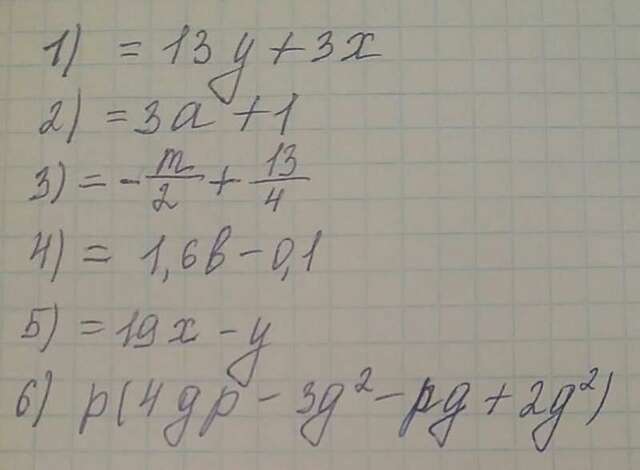 1) = 13y + 3x
2) = 3a + 1
3) = - m/2 + 13/4
4) = 1,6в - 0,1
5) = 19x - y
6) p(4gp - 3g² - pg + 2g²)